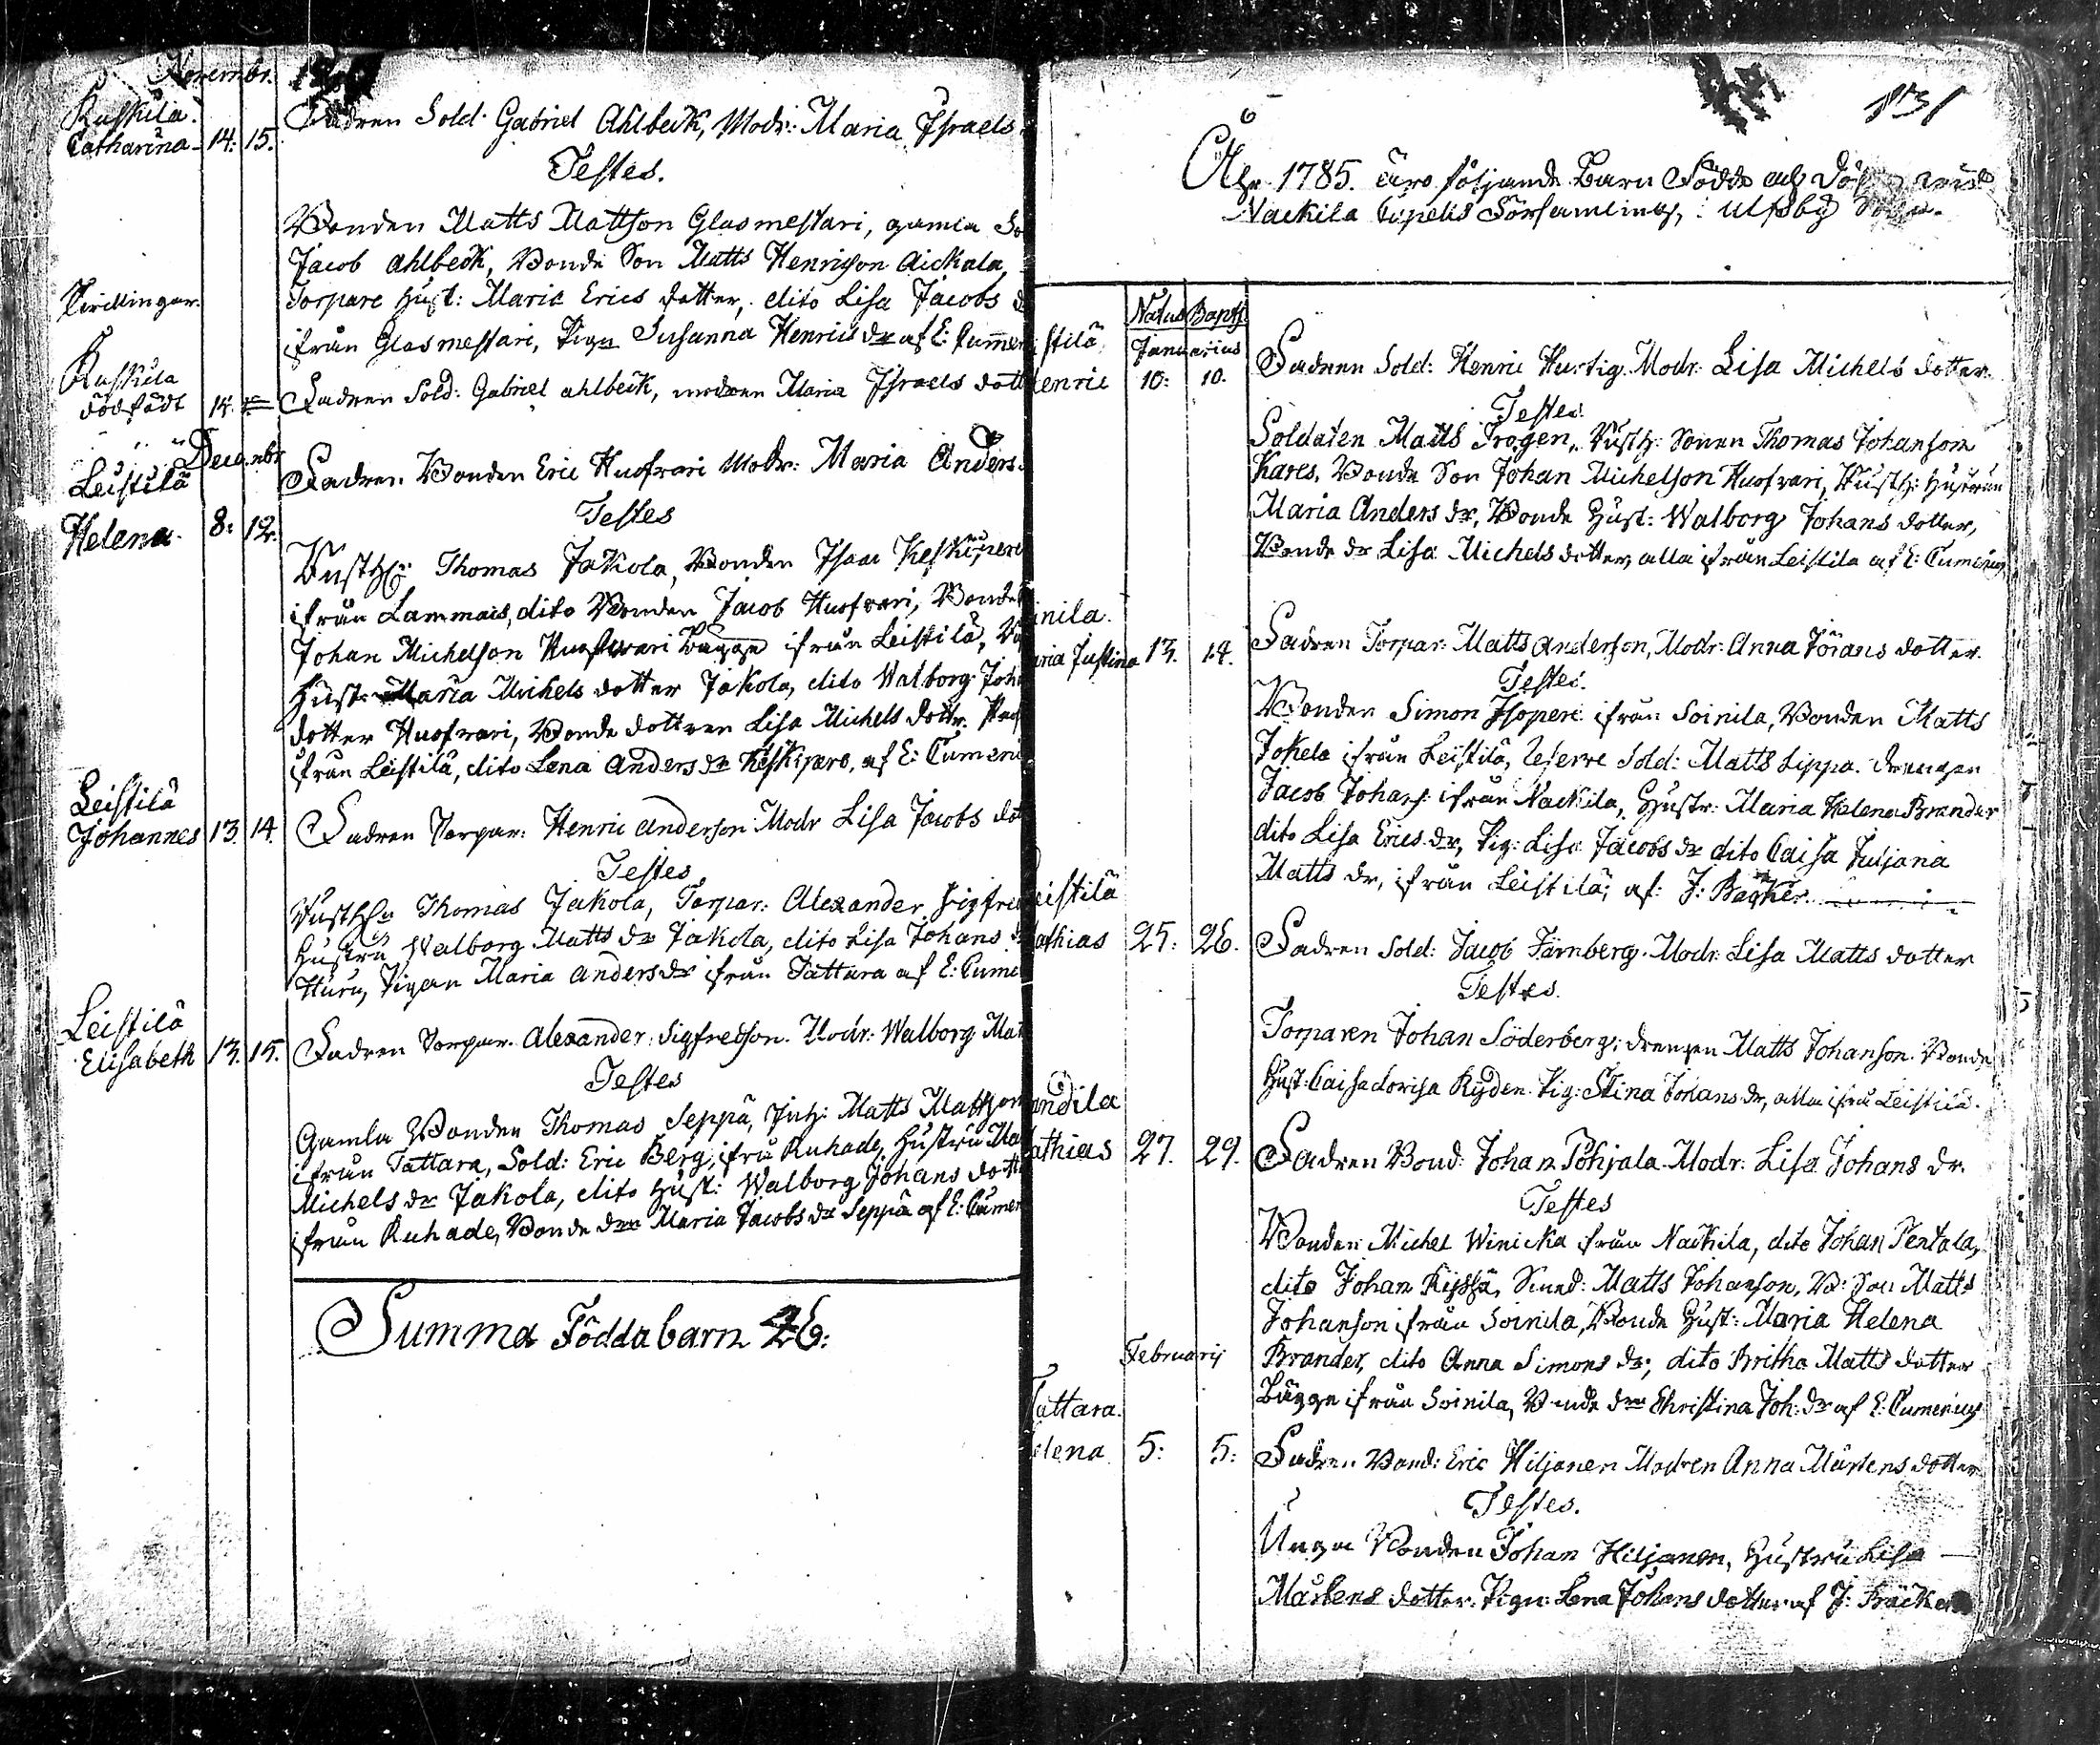 Novembr.
Ruskila.
Catharina 14. 15. Fadren Sold. Gabriel Ahlbeck, Modr: Maria Israels
Testes.
Bonden Matts Mattson Glasmestari, gamla
Jacob Ahlbeck, Bonde Son Matts Henricson Aickala,
Tvillingar. Torpare Hust: Maria Erics dotter, dito Lisa Jacobs
ifrån Glasmestari, Pigan Susanna Henrics dr af E:
Ruskila
dödfödt 14. Fadren Sold: Gabriel Ahlbeck, modren Maria Israels
Decembr
Leistilä Fadren Bonden Eric Huofvari Modr: Maria Anders
Helena. 8: 12. Testes
Rusth: Thomas Jakola, Bonden Isaac
ifrån Lammais, dito Bonden Jacob Huofvari,
Johan Michelson Huofvari Bagge ifrån Leistilä,
Hust. Maria Michels dotter Jakola, dito Walborg
dotter Huofvari, Bonde dottren Lisa Michels dottr.
ifrån Leistilä, dito Lena Anders dr Keskipero, af E:
Leistilä
Johannes 13. 14. Fadren Torpar: Henric Anderson Modr Lisa Jacobs
Testes
Thomas Jakola, Torpar: Alexander
Hustru Walborg Matts dr Jakola, dito Lisa Johans
Huru, Pigan Maria Anders dr ifrån Tattara af E:
Leistilä
Elisabeth 13. 15. Fadren Torpar. Alexander Sigfredson. Modr: Walborg
Testes
Gamla Bonden Thomas Seppä, Matts Mattson
ifrån Tattara, Sold: Eric Berg, ifrå Ruhade, Hustru
Michels dr Jakola, dito Hust: Walborg Johans
ifrån Ruhade, Bonde Maria Jacobs dr Seppä af E:
Summa Födda barn 26.
131
Åhr 1785. äro följande Barn Födde och
Nackila Capells Församling, i Ulfsby
Natus Bapts
Januarius
stilä
enric 10: 10. Fadren Sold: Henric Hurtig. Modr: Lisa Michels dotter.
Testes
Soldaten Matts Trogen, Rusth: Sonen Thomas Johanson
Kares, Bonde Son Johan Michelson Huofvari, Rusth: Hustrun
Maria Anders dr, Bonde Hust: Walborg Johans dotter,
Bonde dr Lisa Michels dotter, alla ifrån Leistila af E: Cumenius
inila.
aria Justina 13. 14. Fadren Torpar: Matts Anderson, Modr: Anna Jörans dotter.
Testes.
Bonden Simon Isopere ifrån Soinila, Bonden Matts
Jokela ifrån Leistilä, Reserve Sold: Matts Lippa. drengen
Jacob Johans: ifrån Nackila, Hustr: Maria Helena Brander
dito Lisa Erics dr, Pig: Lisa Jacobs dr dito Caisa Juljana
Matts dr, ifrån Leistilä; af: J: Bäcker.
eistilä
athias 25: 26. Fadren Sold: Jacob Järnberg. Modr: Lisa Matts dotter
Testes.
Torparen Johan Söderberg; drengen Matts Johanson. Bonde
Hust: Caisa Lovisa Ryden. Pig: Stina Johans dr, alla ifrå Leistilä.
andila
athias 27. 29. Fadren Bond: Johan Pohjala. Modr: Lisa Johans dr.
Testes
Bonden Michel Winicka ifrån Nackila, dito Johan Pentala,
dito Johan Kyssä, Matts Johanson, B: Son Matts
Johanson ifrån Soinila, Bonde Hust: Maria Helena
Februarij Brander, dito Anna Simons dr; dito Britha Matts dotter
Bagge ifrån Soinila, Bonde Christina Joh: dr af E: Cumenius
Tattara.
elena 5: 5: Fadren Bond: Eric Hiljanen Modren Anna Mårtens dotter.
Testes.
Unga Bonden Johan Hiljanen, Hustru Lisa
Mårtens dotter. Pigan Lena Johans dotter af J: Bäcker